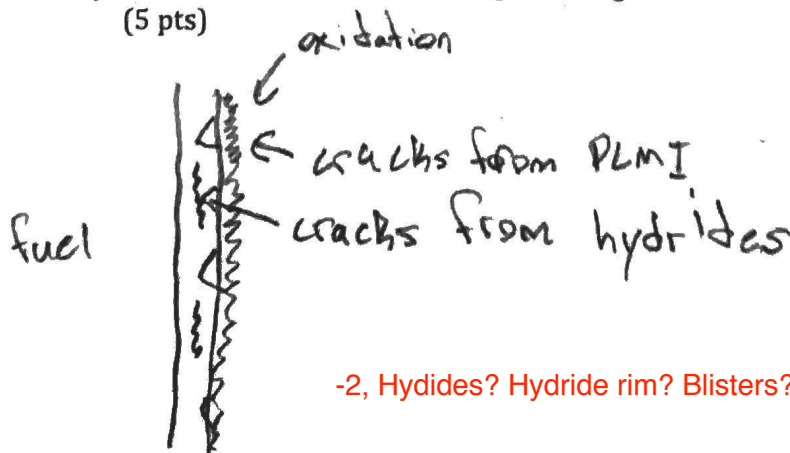 (5 pts)
oxidation
cracks from PCMI
cracks from hydrides
fuel
-2, Hydides? Hydride rim? Blisters?